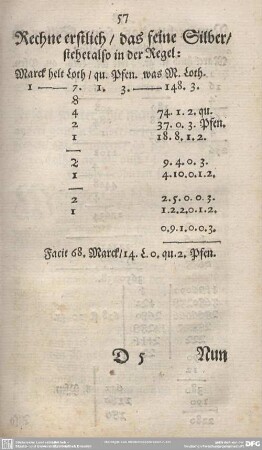 57
Rechne erstlich / das feine Silber /
stehet also in der Regel:
Marck helt Loth / qu. Pfen. was M. Loth.
1 — 7. 1. 3. — 148. 3.
8
4 74. 1. 2. qu.
2 37. 0. 3. Pfen.
1 18. 8. 1. 2.
2 9. 4. 0. 3.
1 4. 10. 0. 1. 2.
2 2. 5. 0. 0. 3.
1 1. 2. 2. 0. 1. 2.
0. 9. 1. 0. 0. 3.
Facit 68. Marck / 14. L. 0. qu. 2. Pfen.
D 5 Nun